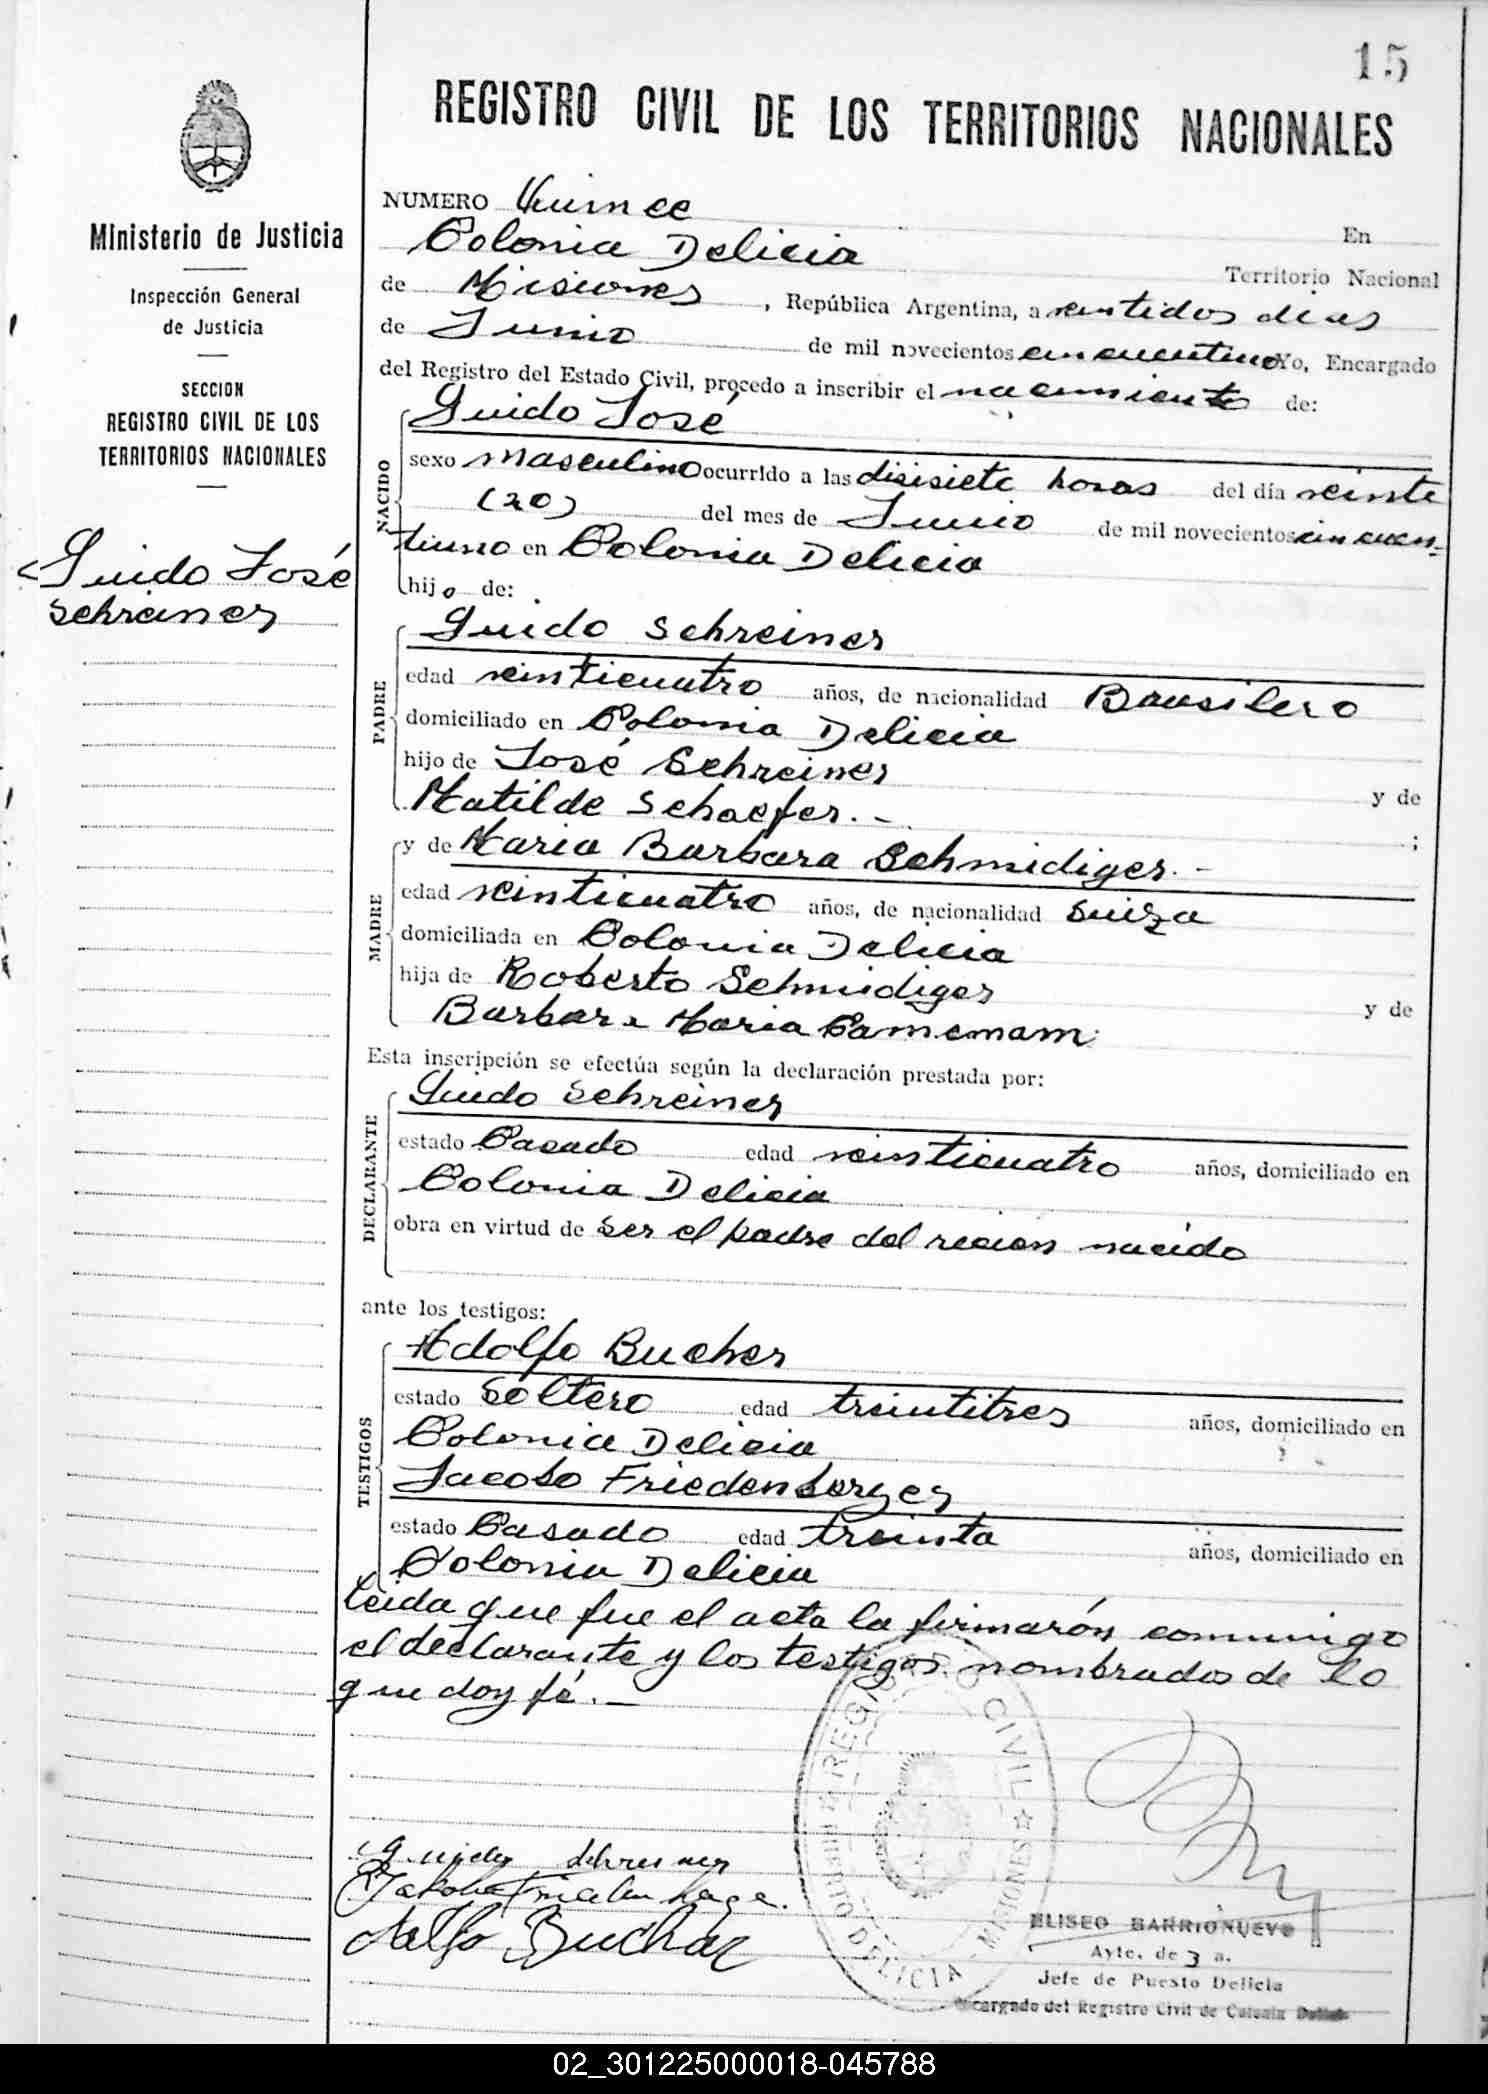 15
REGISTRO CIVIL DE LOS TERRITORIOS NACIONALES
Ministerio de Justicia
Inspección General
de Justicia
SECCION
REGISTRO CIVIL DE LOS
TERRITORIOS NACIONALES
Guido José
Schreiner
NUMERO Quince
En
Colonia Delicia
Territorio Nacional
de Misiones, República Argentina, a ventidos dias
de Junio de mil novecientos cincuentiuno Yo, Encargado
del Registro del Estado Civil, procedo a inscribir el nacimiento de:
Guido José
NACIDO
sexo masculino ocurrido a las disisiete horas del día veinte
(20) del mes de Junio de mil novecientos cincuen-
tiuno en Colonia Delicia
hijo de:
PADRE
Guido Schreiner
edad veinticuatro años, de nacionalidad Brasilero
domiciliado en Colonia Delicia
hijo de José Schreiner y de
Matilde Schaefer.- ;
MADRE
y de Maria Barbara Schmidiger.-
edad veinticuatro años, de nacionalidad Suiza
domiciliada en Colonia Delicia
hija de Roberto Schmidiger y de
Barbara Maria
Esta inscripción se efectúa según la declaración prestada por:
DECLARANTE
Guido Schreiner
estado Casado edad veinticuatro años, domiciliado en
Colonia Delicia
obra en virtud de ser el padre del recien nacido
ante los testigos:
TESTIGOS
Adolfo Bucher
estado Soltero edad treintitres años, domiciliado en
Colonia Delicia
Jacobo Friedenberger
estado Casado edad treinta años, domiciliado en
Colonia Delicia
Leida que fue el acta la firmarón conmigo
el declarante y los testigos nombrados de lo
que doy fé.-
REGISTRO CIVIL ☆ MISIONES - DELICIA
Adolfo Bucher
ELISEO BARRIONUEVO
Ayte. de 3 a.
Jefe de Puesto Delicia
Encargado del Registro Civil de Colonia Delicia
02_301225000018-045788